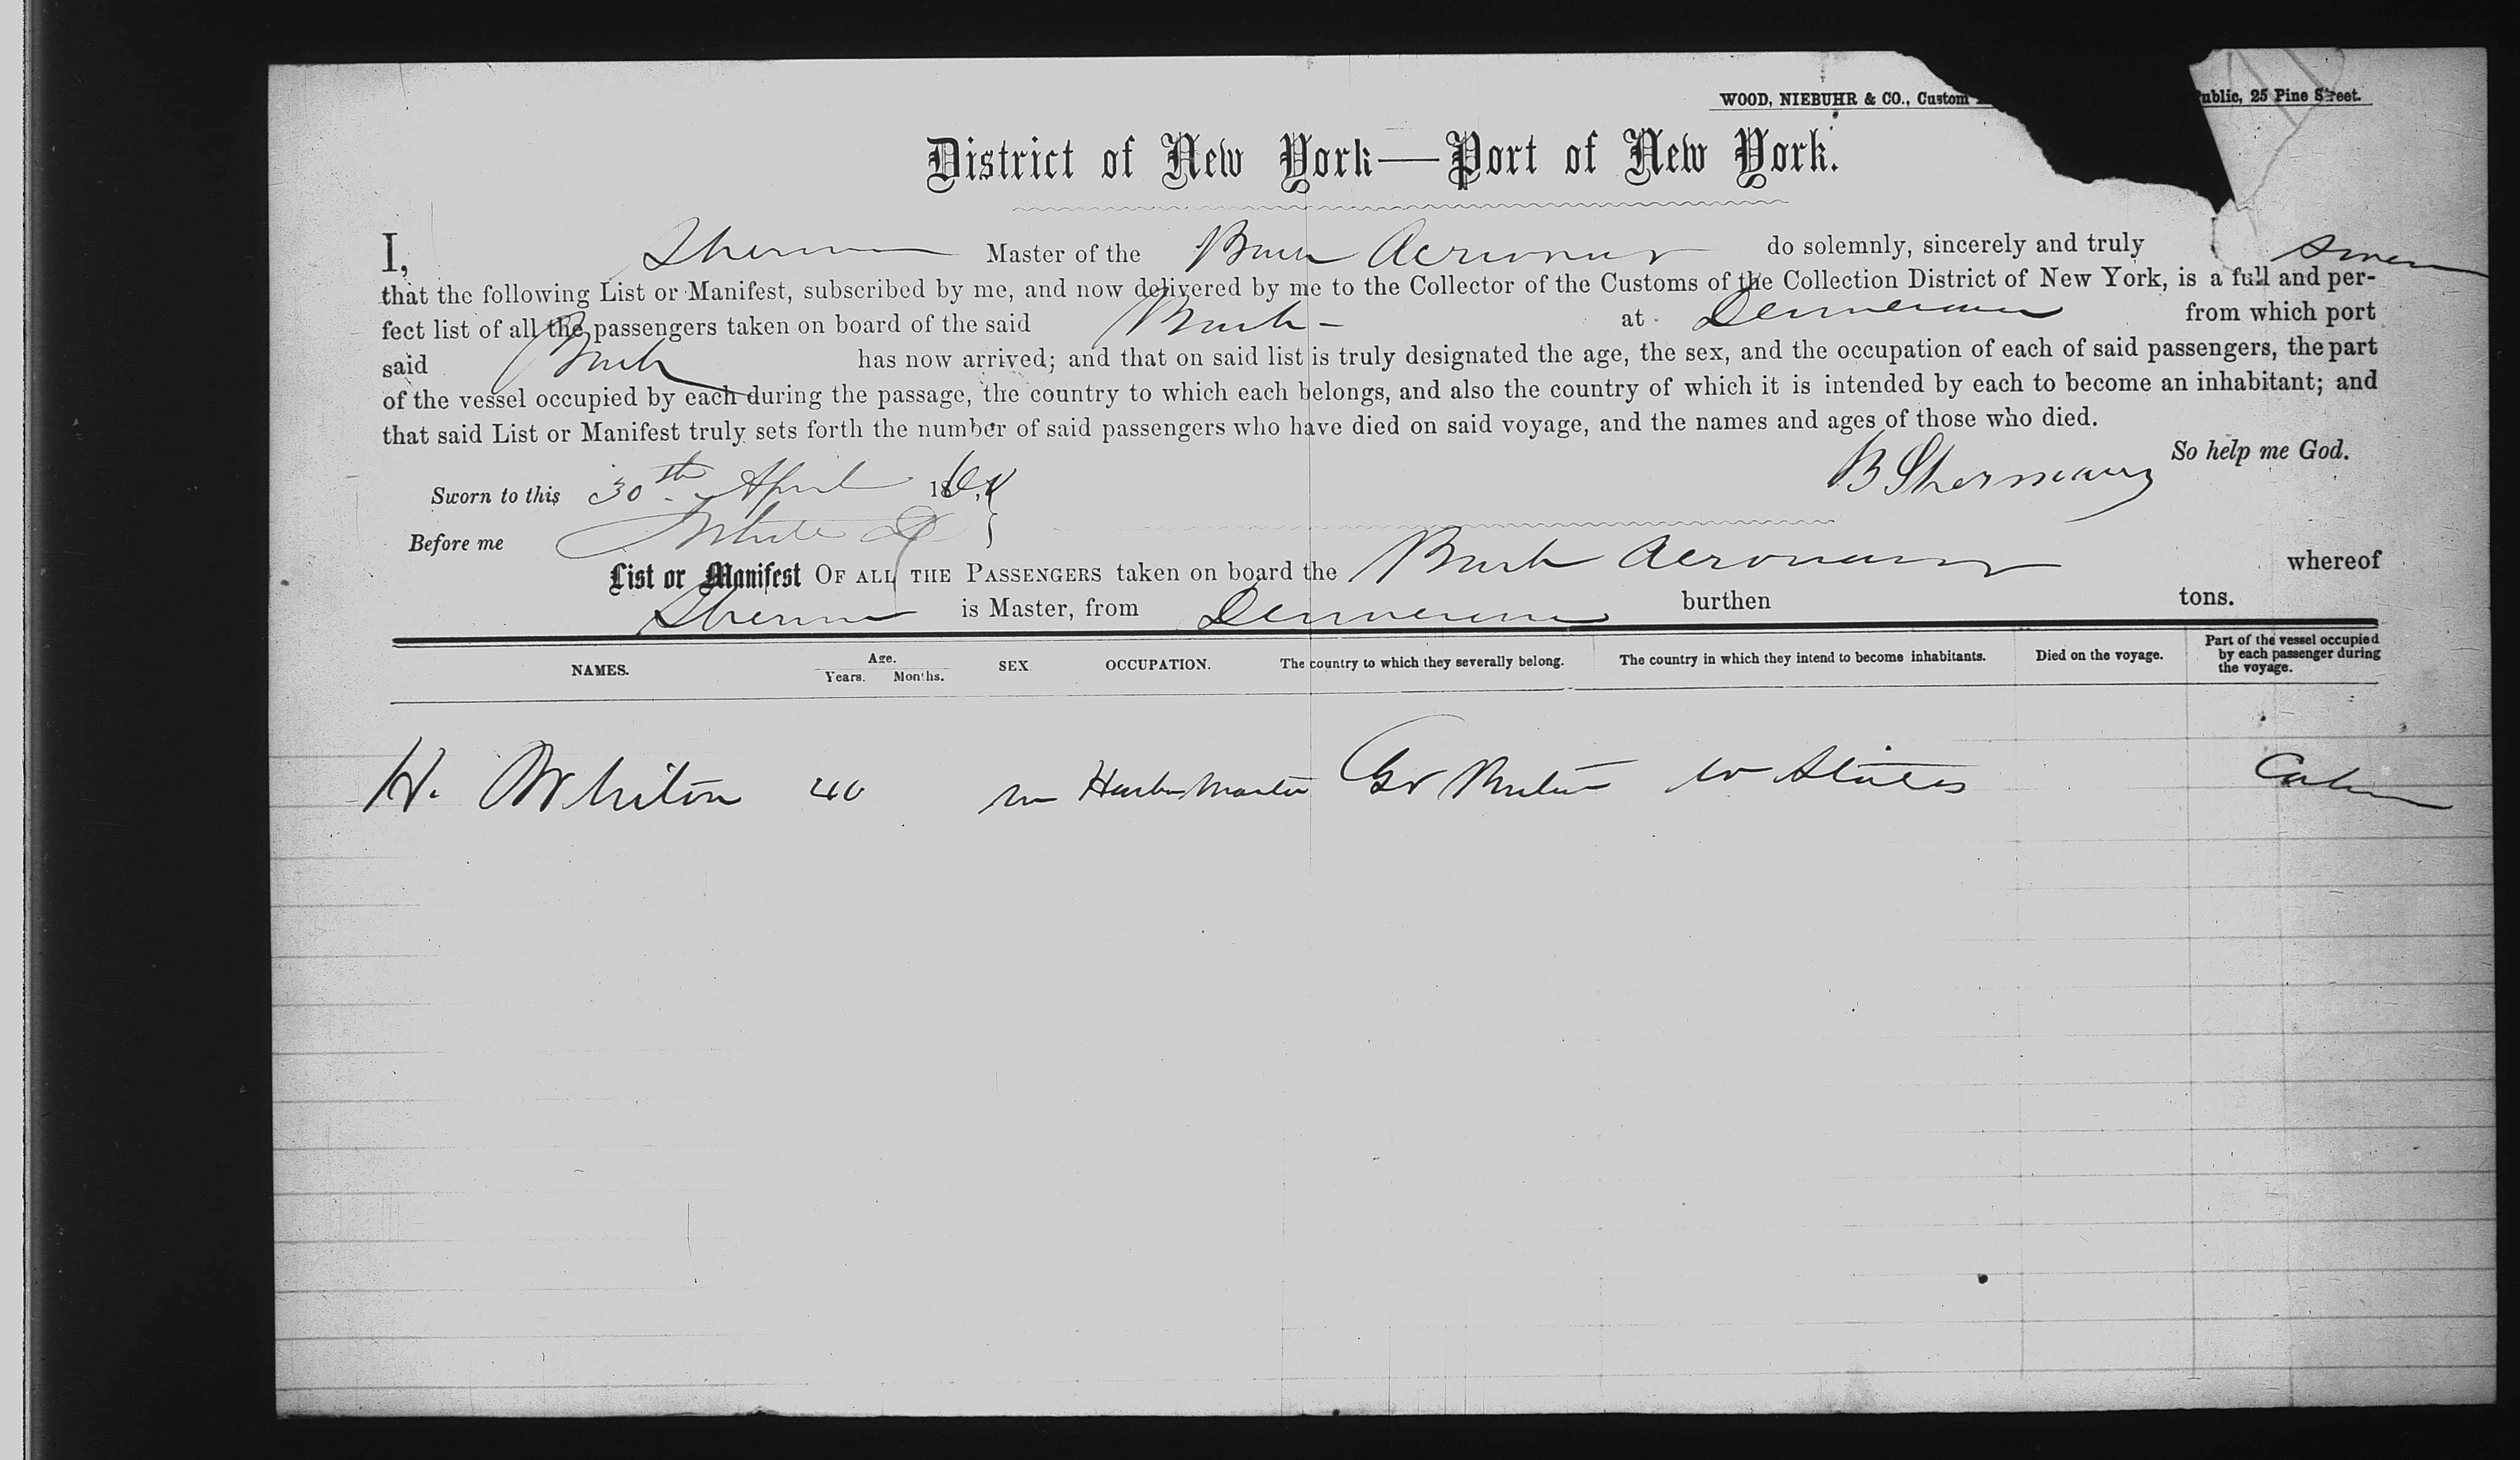 WOOD, NIEBUHR & CO., Custom ublic, 25 Pine Street.
District of New York—Port of New York.
I, Sherman Master of the Bark Aeronaut do solemnly, sincerely and truly swear
that the following List or Manifest, subscribed by me, and now delivered by me to the Collector of the Customs of the Collection District of New York, is a full and per-
fect list of all the passengers taken on board of the said Bark - at from which port
said Bark has now arrived; and that on said list is truly designated the age, the sex, and the occupation of each of said passengers, the part
of the vessel occupied by each during the passage, the country to which each belongs, and also the country of which it is intended by each to become an inhabitant; and
that said List or Manifest truly sets forth the number of said passengers who have died on said voyage, and the names and ages of those who died.
B Sherman So help me God.
Sworn to this 30th April 18
Before me
List or Manifest OF ALL THE PASSENGERS taken on board the Bark Aeronaut whereof
Sherman is Master, from burthen tons.
NAMES. Age. Years. Months. SEX OCCUPATION. The country to which they severally belong. The country in which they intend to become inhabitants. Died on the voyage. Part of the vessel occupied by each passenger during the voyage.
H. Whiton 40 m Harbor Master Gr Britain U States Cabin